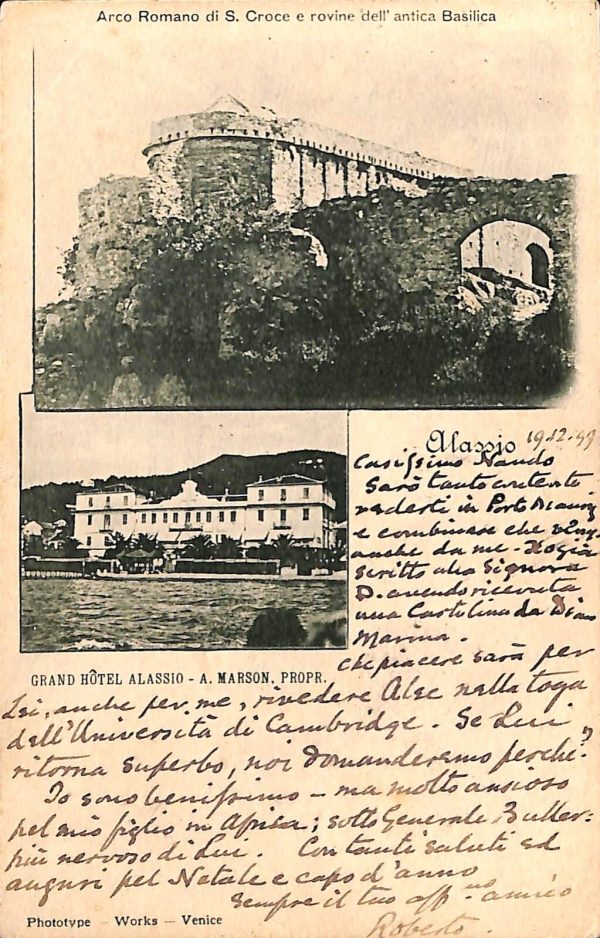 Arco Romano di S. Croce e rovine dell' antica Basilica
Alassio 19.12.99
Carissimo Nando
Sarò tanto contento
vederti in Porto Maurº
e combinare che veng
anche da me - Ho già
scritto alla Signora
D. avendo ricevuta
una Cartolina da Diano
Marina.
Che piacere sarà per
GRAND HÔTEL ALASSIO - A. MARSON, PROPR.
Lei, anche per me, rivedere Alec nella toga
dell'Università di Cambridge. Se Lui
ritorna superbo, noi domanderemo perchè.
Io sono benissimo - ma molto ansioso
pel mio figlio in Africa; sotto Generale Buller -
più nervoso di Lui. Con tanti saluti ed
auguri pel Natale e capo d'anno
Sempre il tuo affmo amico
Roberto.
Phototype - Works - Venice